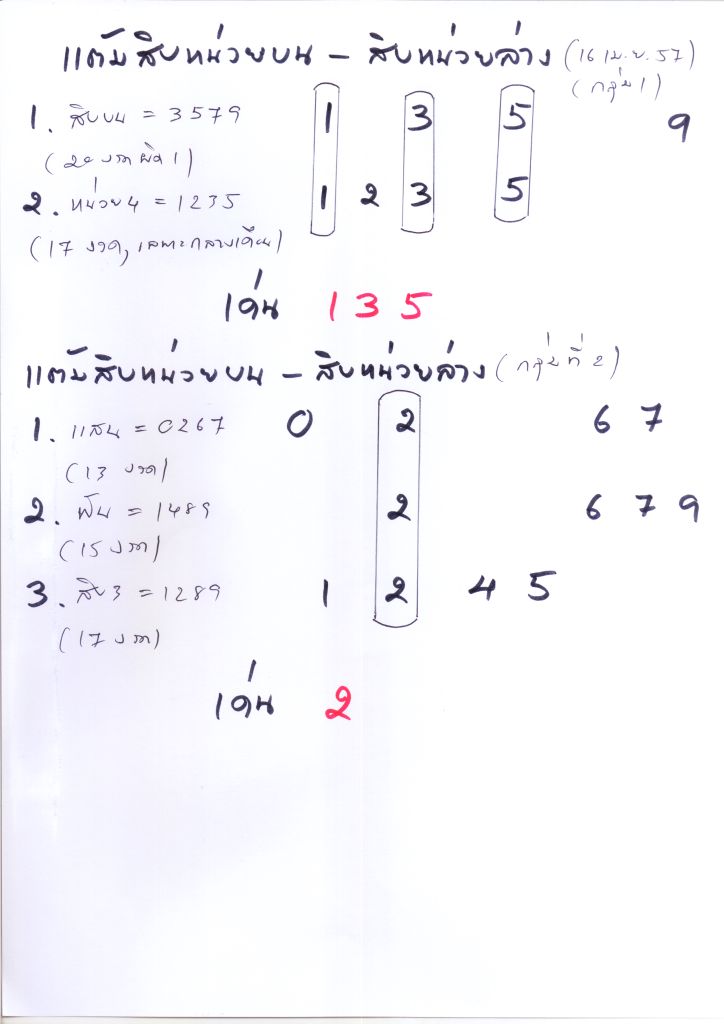 แต้มสิบหน่วยบน - สิบหน่วยล่าง (16 เม.ย. 57)
(กลุ่ม 1)
1. สิบบน = 3579 1 3 5 9
(20 งวดผิด 1)
2. หน่วย4 = 1235 1 2 3 5
(17 งวด, เฉพาะกลางเดือน)
เด่น 1 3 5
แต้มสิบหน่วยบน - สิบหน่วยล่าง (กลุ่มที่ 2)
1. แสน = 0267 0 2 6 7
(13 งวด)
2. พัน = 1489 2 6 7 9
(15 งวด)
3. สิบ3 = 1289 1 2 4 5
(17 งวด)
เด่น 2